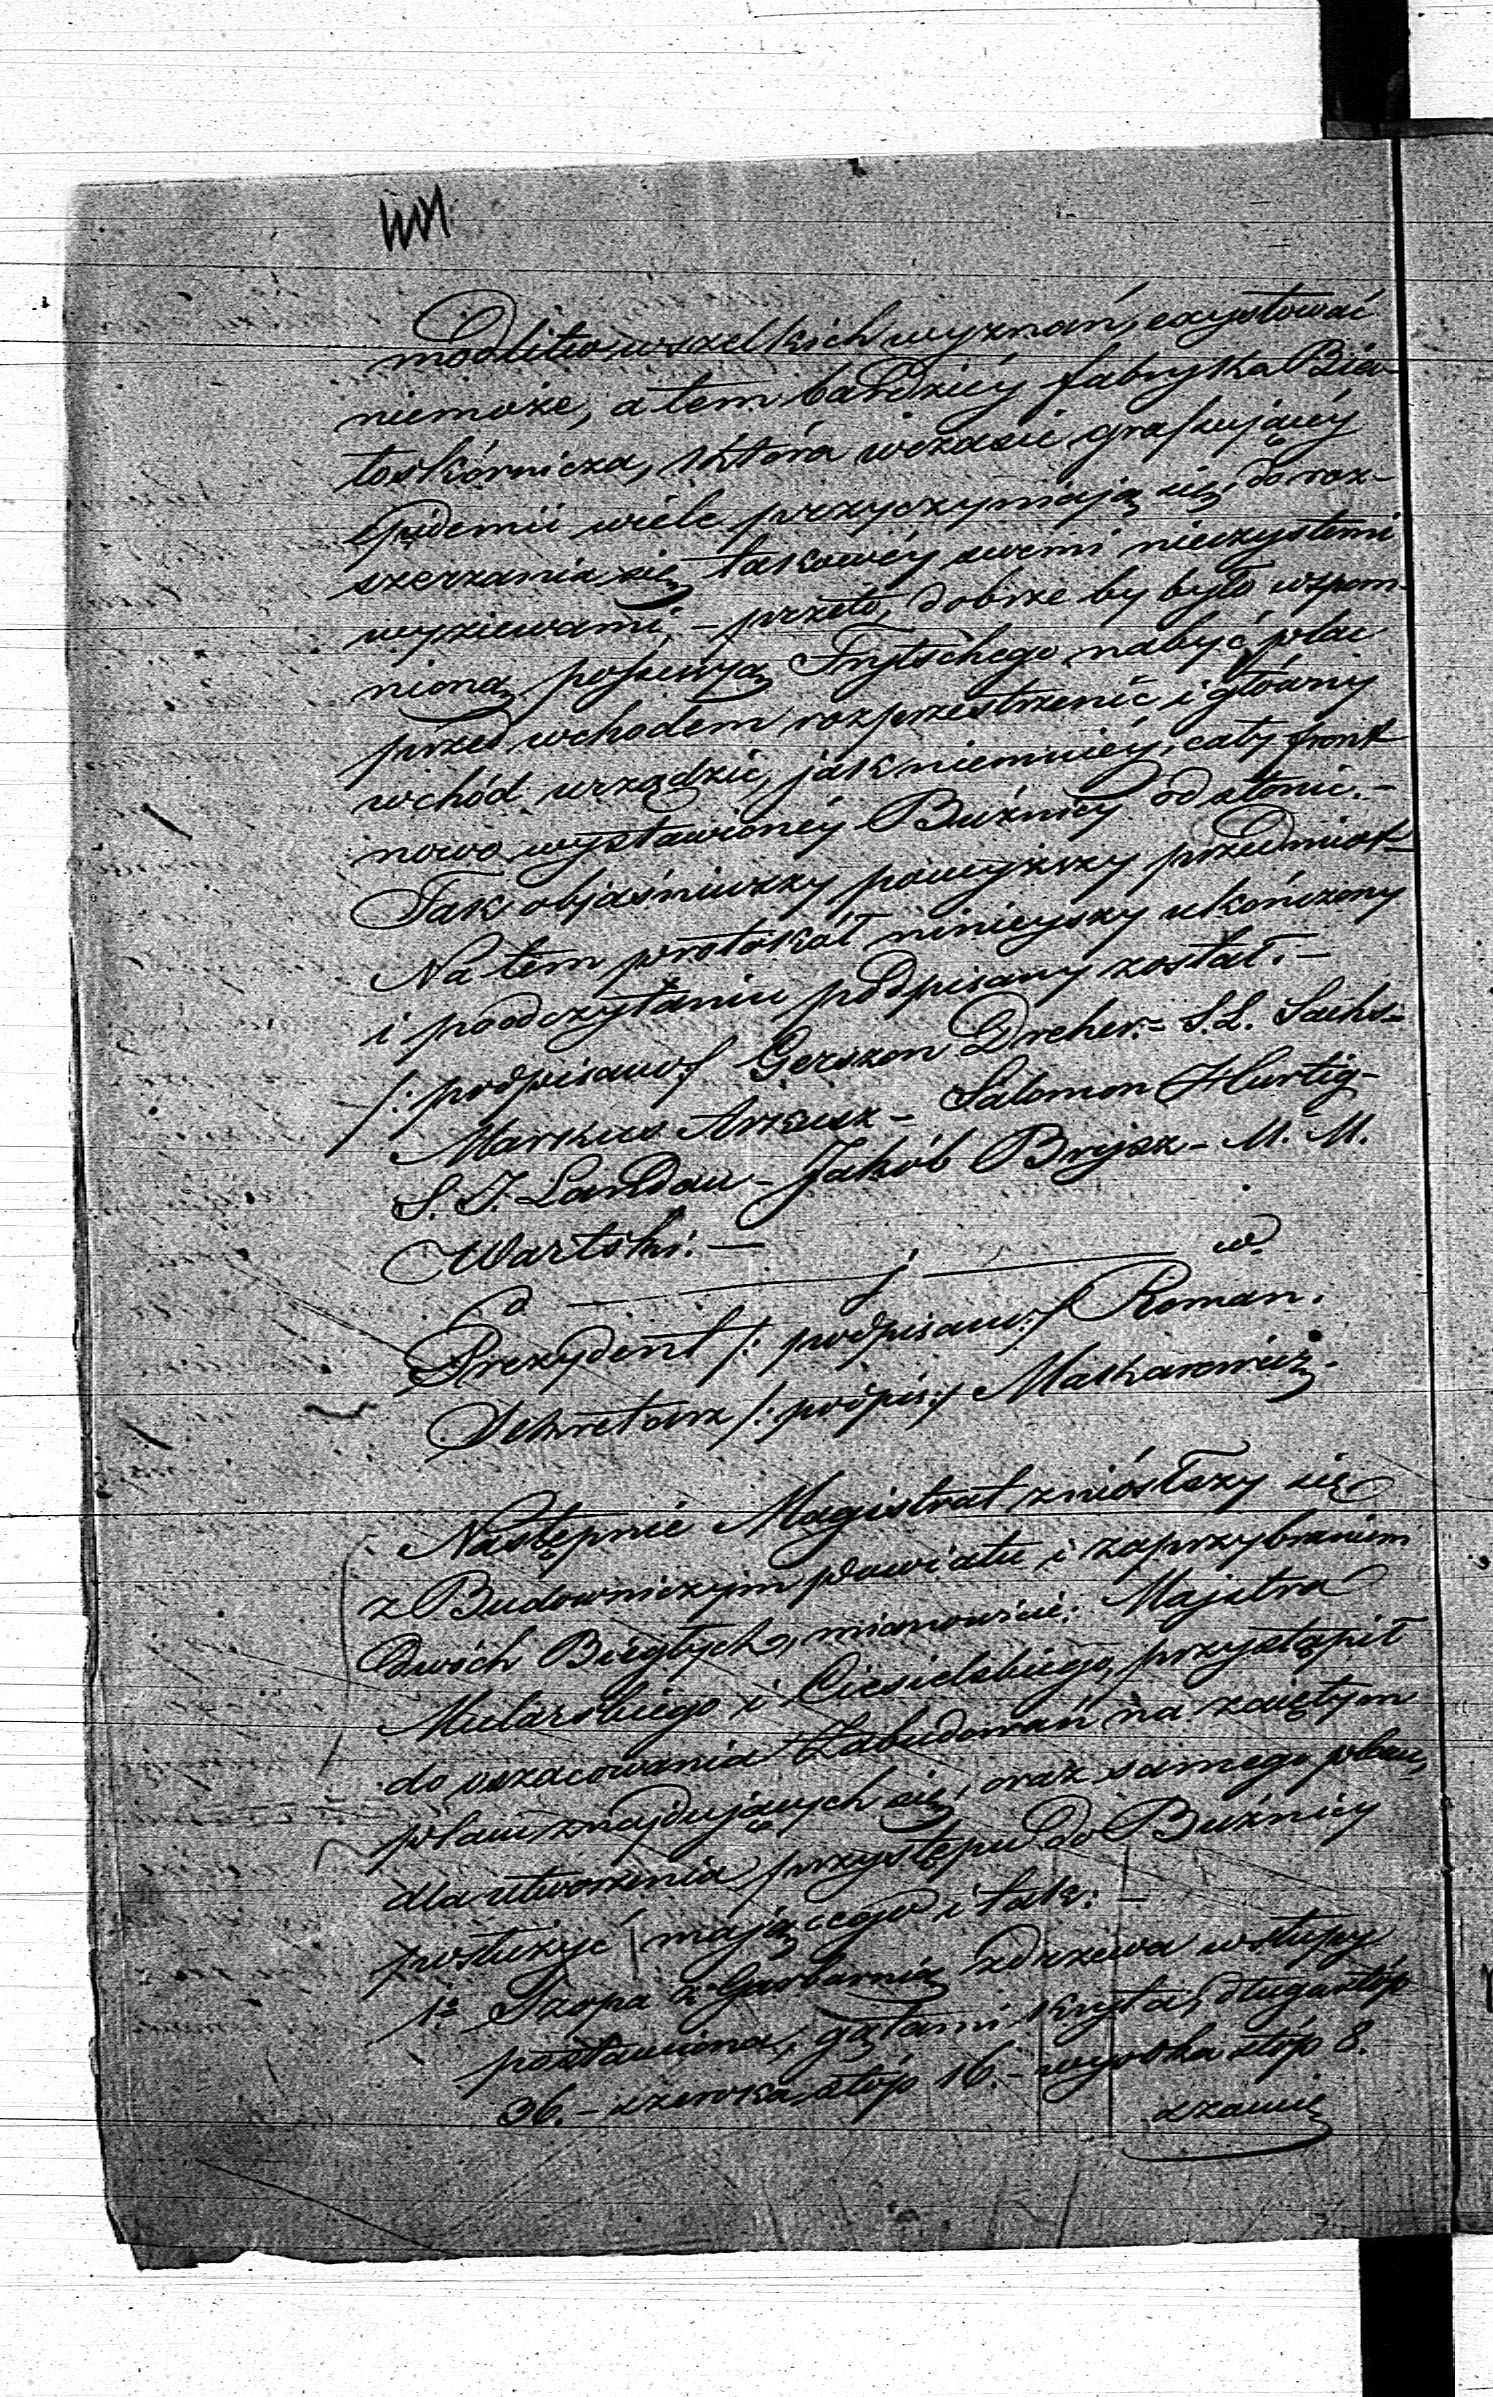 modlitw wszelkich wyznań, exystować
niemoże, a tem bardziéj fabryka Biéa-
łoskórnicza, która wczasie grassującéj
Epidemii wiele przyczyniają się do roz-
szerzania się takowéj swemi nieczystemi
wyziewami, – przeto, dobrze by było wspom-
nioną possessyą Frytschego nabyć, plac
przed wchodem rozprzestrzenić i główny
wchód urządzić, jak niemniéj, cały front
nowo wystawionéj Buźnicy odsłonić. –
Tak objaśniwszy powyższy przedmiot –
Na tem protokół ninieyszy ukończony
i po odczytaniu podpisany został. –
/: podpisano :/ Gerszon Dreher. – S. L. Sachs –
Markus Arkusz – Salomon Hurtig –
S. J. Landau – Jakób Brysz – M. M.
Wartski. –
j w.
Prezydent /: podpisano :/ Roman.
Sekretarz /: podpis :/ Makarowicz.
Następnie Magistrat zniósłszy się
z Budowniczym powiatu i zaprzybraniem
dwóch Biegłych, mianowicie: Majstra
Mularskiego i Ciesielskiego, przystąpił
do oszacowania Zabudowań na zajętym
placu znajdujących się, oraz samego placu,
dla utworzenia przystępu do Buźnicy
posłużyć mającego i tak: –
1º Szopa z Garbarnią z drzewa w słupy
postawiona, gątami kryta, długa stóp
36. – szeroka stóp 16. – wysoka stóp 8.